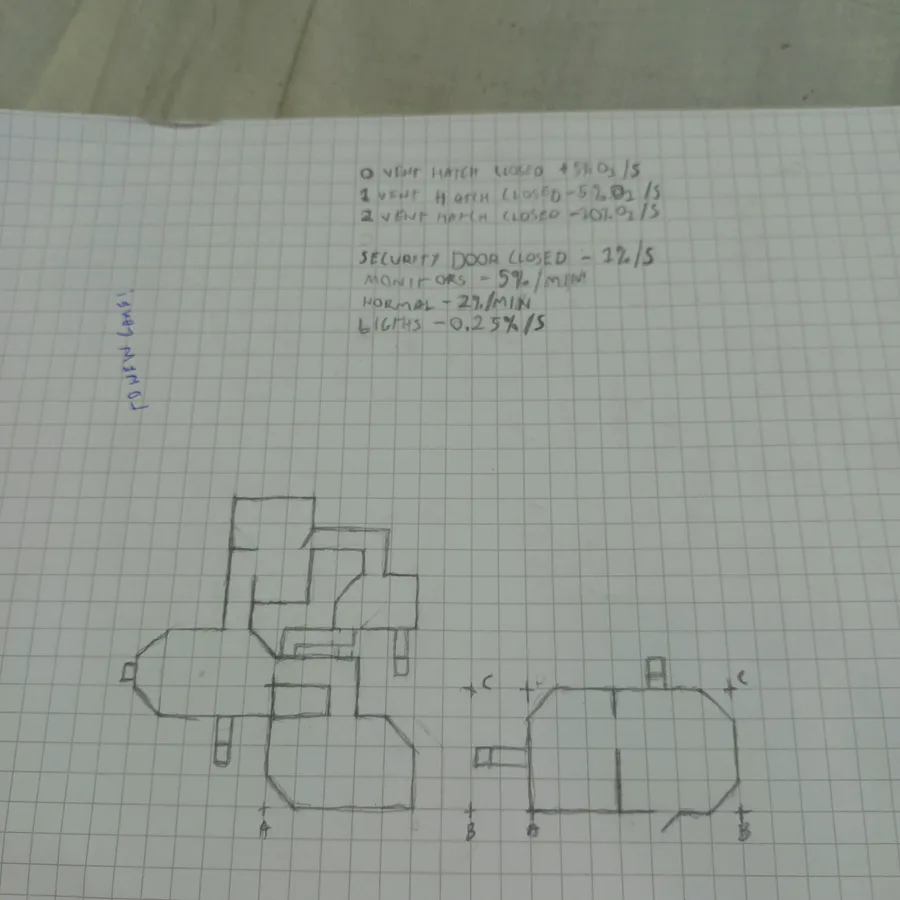 0 VENT HATCH CLOSED +5% O2/S
1 VENT HATCH CLOSED -5% O2/S
2 VENT HATCH CLOSED -10% O2/S
SECURITY DOOR CLOSED - 1%/S
MONITORS - 5%/MIN
NORMAL - 2%/MIN
LIGTHS - 0.25%/S
C
C
A
B
A
B